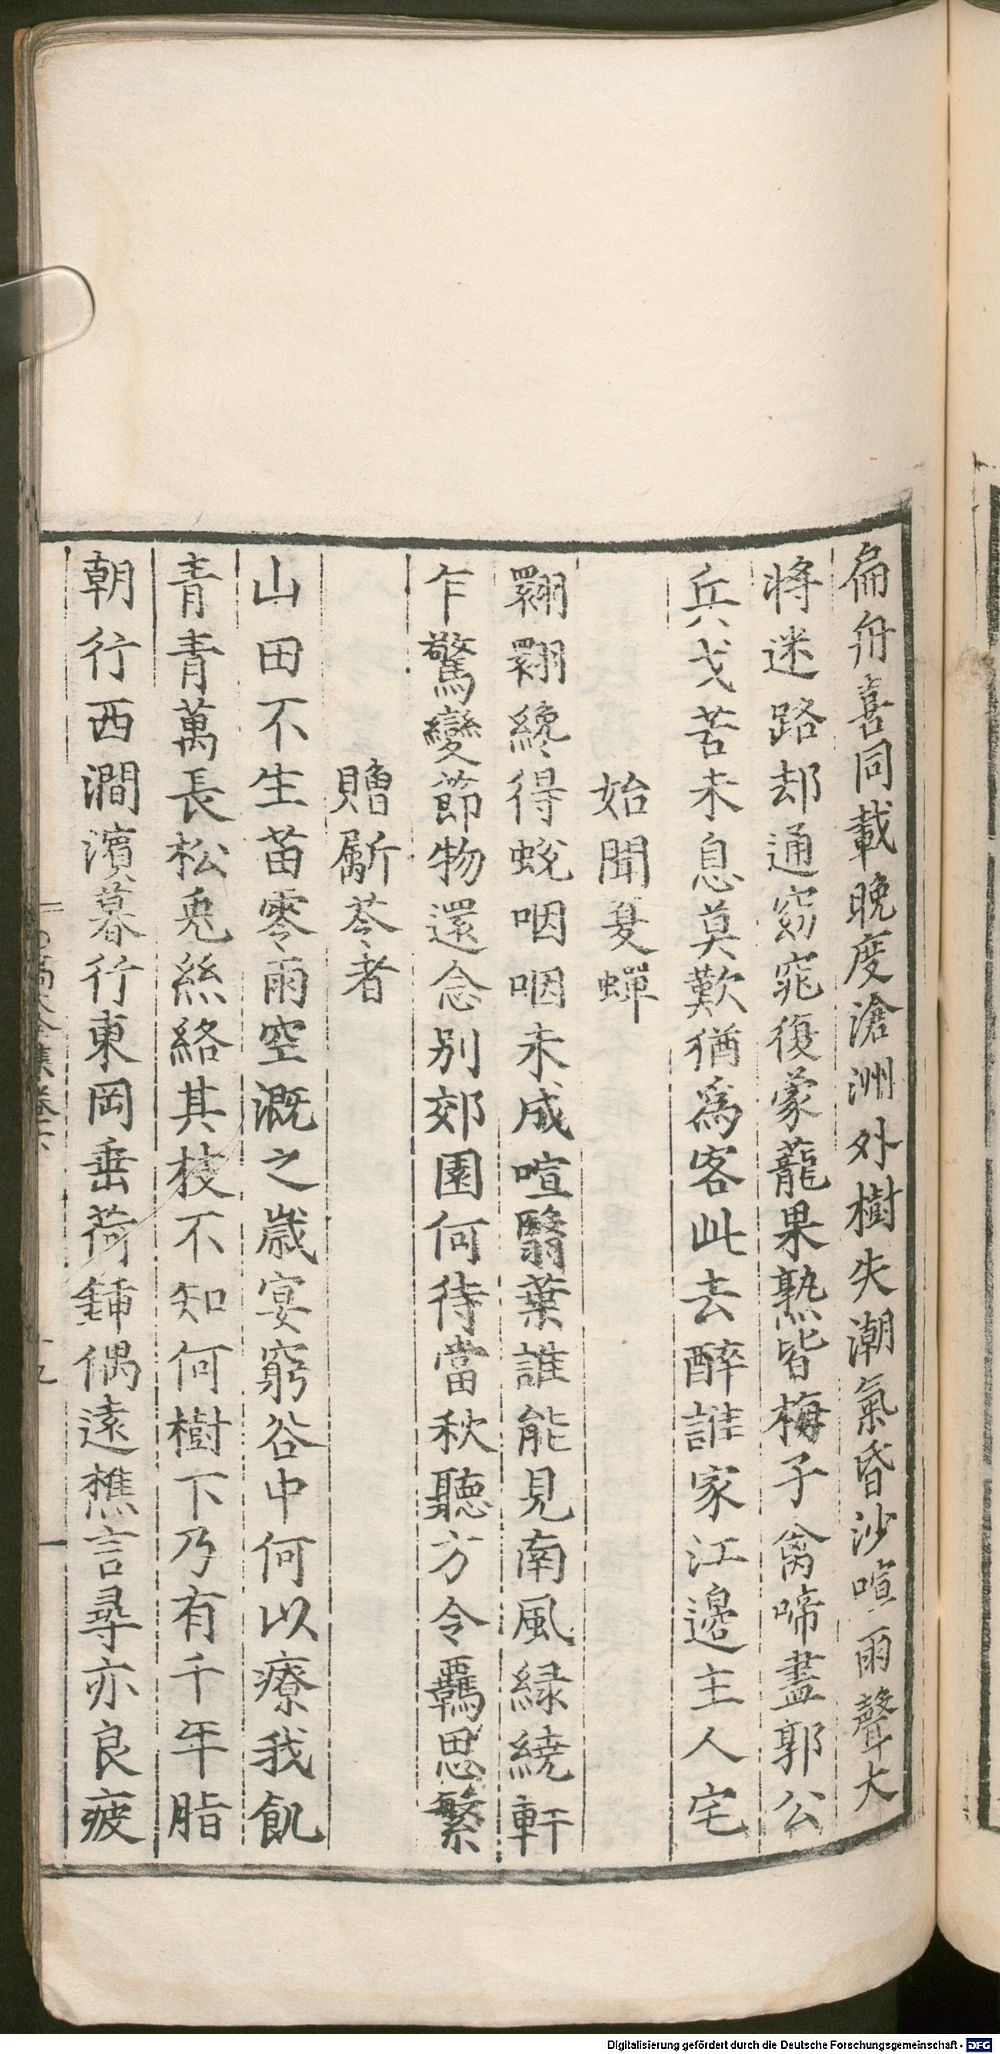 扁舟喜同載晚度滄洲外樹失潮氣昏沙喧雨聲大
將迷路却通窈窕復蒙蘢果熟皆梅子禽啼盡郭公
兵戈苦未息莫歎猶爲客此去醉誰家江邊主人宅
始聞夏蟬
翾翾纔得蛻咽咽未成喧翳葉誰能見南風緑繞軒
乍驚變節物還念别郊園何待當秋聽方令羈思繁
贈斸苓者
山田不生苗零雨空溉之歲宴窮谷中何以療我飢
青青萬長松兎絲絡其枝不知何樹下乃有千年脂
朝行西澗濱暮行東岡垂荷鍤偶遠樵言尋亦良疲
Digitalisierung gefördert durch die Deutsche Forschungsgemeinschaft - DFG